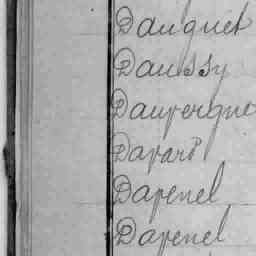 Dauguet
Daussy
Dauvergne
Davard
Davenel
Davenel